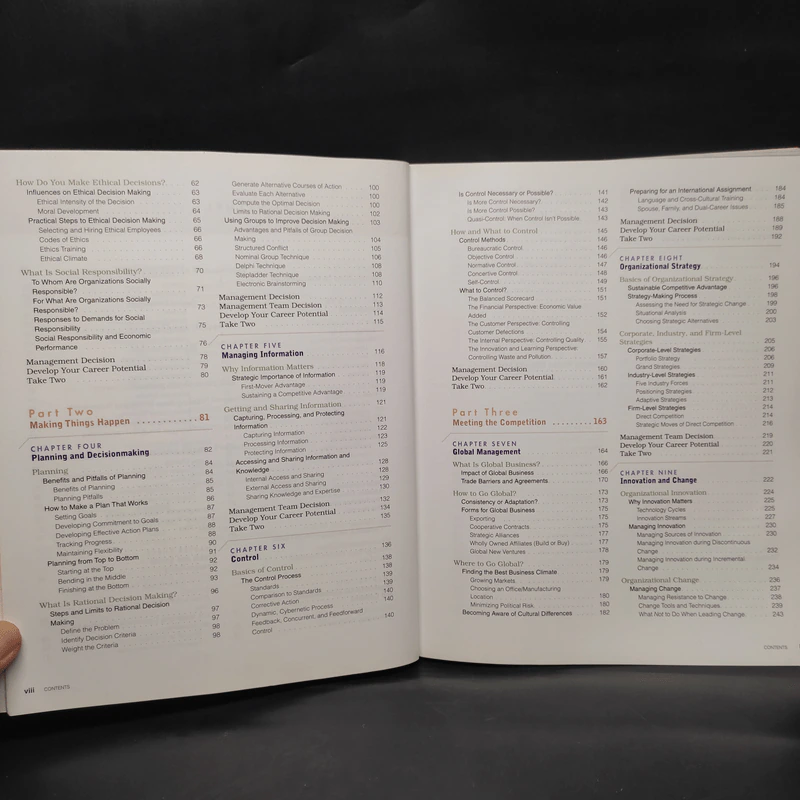 How Do You Make Ethical Decisions? 62
Influences on Ethical Decision Making 63
Ethical Intensity of the Decision 63
Moral Development 64
Practical Steps to Ethical Decision Making 65
Selecting and Hiring Ethical Employees 66
Codes of Ethics 66
Ethics Training 66
Ethical Climate 68
What Is Social Responsibility? 70
To Whom Are Organizations Socially
Responsible? 71
For What Are Organizations Socially
Responsible? 73
Responses to Demands for Social
Responsibility 75
Social Responsibility and Economic
Performance 76
Management Decision 78
Develop Your Career Potential 79
Take Two 80
Part Two
Making Things Happen 81
CHAPTER FOUR
Planning and Decisionmaking 82
Planning 84
Benefits and Pitfalls of Planning 84
Benefits of Planning 85
Planning Pitfalls 86
How to Make a Plan That Works 87
Setting Goals 87
Developing Commitment to Goals 88
Developing Effective Action Plans 88
Tracking Progress 90
Maintaining Flexibility 91
Planning from Top to Bottom 92
Starting at the Top 92
Bending in the Middle 93
Finishing at the Bottom 94
What Is Rational Decision Making? 96
Steps and Limits to Rational Decision
Making 97
Define the Problem 97
Identify Decision Criteria 98
Weight the Criteria 98
viii CONTENTS
Generate Alternative Courses of Action 100
Evaluate Each Alternative 100
Compute the Optimal Decision 100
Limits to Rational Decision Making 102
Using Groups to Improve Decision Making 103
Advantages and Pitfalls of Group Decision
Making 104
Structured Conflict 105
Nominal Group Technique 106
Delphi Technique 108
Stepladder Technique 108
Electronic Brainstorming 110
Management Decision 112
Management Team Decision 113
Develop Your Career Potential 114
Take Two 115
CHAPTER FIVE
Managing Information 116
Why Information Matters 118
Strategic Importance of Information 119
First-Mover Advantage 119
Sustaining a Competitive Advantage 119
Getting and Sharing Information 121
Capturing, Processing, and Protecting
Information 121
Capturing Information 122
Processing Information 123
Protecting Information 125
Accessing and Sharing Information and
Knowledge 128
Internal Access and Sharing 128
External Access and Sharing 129
Sharing Knowledge and Expertise 130
Management Team Decision 132
Develop Your Career Potential 134
Take Two 135
CHAPTER SIX
Control 136
Basics of Control 138
The Control Process 138
Standards 139
Comparison to Standards 139
Corrective Action 140
Dynamic, Cybernetic Process 140
Feedback, Concurrent, and Feedforward
Control 140
Is Control Necessary or Possible? 141
Is More Control Necessary? 142
Is More Control Possible? 143
Quasi-Control: When Control Isn't Possible 143
How and What to Control 145
Control Methods 146
Bureaucratic Control 146
Objective Control 146
Normative Control 147
Concertive Control 148
Self-Control 149
What to Control? 151
The Balanced Scorecard 151
The Financial Perspective: Economic Value
Added 152
The Customer Perspective: Controlling
Customer Defections 154
The Internal Perspective: Controlling Quality 155
The Innovation and Learning Perspective:
Controlling Waste and Pollution 157
Management Decision 160
Develop Your Career Potential 161
Take Two 162
Part Three
Meeting the Competition 163
CHAPTER SEVEN
Global Management 164
What Is Global Business? 166
Impact of Global Business 166
Trade Barriers and Agreements 170
How to Go Global? 173
Consistency or Adaptation? 173
Forms for Global Business 175
Exporting 175
Cooperative Contracts 175
Strategic Alliances 177
Wholly Owned Affiliates (Build or Buy) 177
Global New Ventures 178
Where to Go Global? 179
Finding the Best Business Climate 179
Growing Markets 179
Choosing an Office/Manufacturing
Location 180
Minimizing Political Risk 180
Becoming Aware of Cultural Differences 182
Preparing for an International Assignment 184
Language and Cross-Cultural Training 184
Spouse, Family, and Dual-Career Issues 185
Management Decision 188
Develop Your Career Potential 189
Take Two 192
CHAPTER EIGHT
Organizational Strategy 194
Basics of Organizational Strategy 196
Sustainable Competitive Advantage 196
Strategy-Making Process 198
Assessing the Need for Strategic Change 199
Situational Analysis 200
Choosing Strategic Alternatives 203
Corporate, Industry, and Firm-Level
Strategies 205
Corporate-Level Strategies 206
Portfolio Strategy 206
Grand Strategies 209
Industry-Level Strategies 211
Five Industry Forces 211
Positioning Strategies 212
Adaptive Strategies 213
Firm-Level Strategies 214
Direct Competition 214
Strategic Moves of Direct Competition 216
Management Team Decision 219
Develop Your Career Potential 220
Take Two 221
CHAPTER NINE
Innovation and Change 222
Organizational Innovation 224
Why Innovation Matters 225
Technology Cycles 225
Innovation Streams 227
Managing Innovation 230
Managing Sources of Innovation 230
Managing Innovation during Discontinuous
Change 232
Managing Innovation during Incremental
Change 234
Organizational Change 236
Managing Change 237
Managing Resistance to Change 238
Change Tools and Techniques 239
What Not to Do When Leading Change 243
CONTENTS